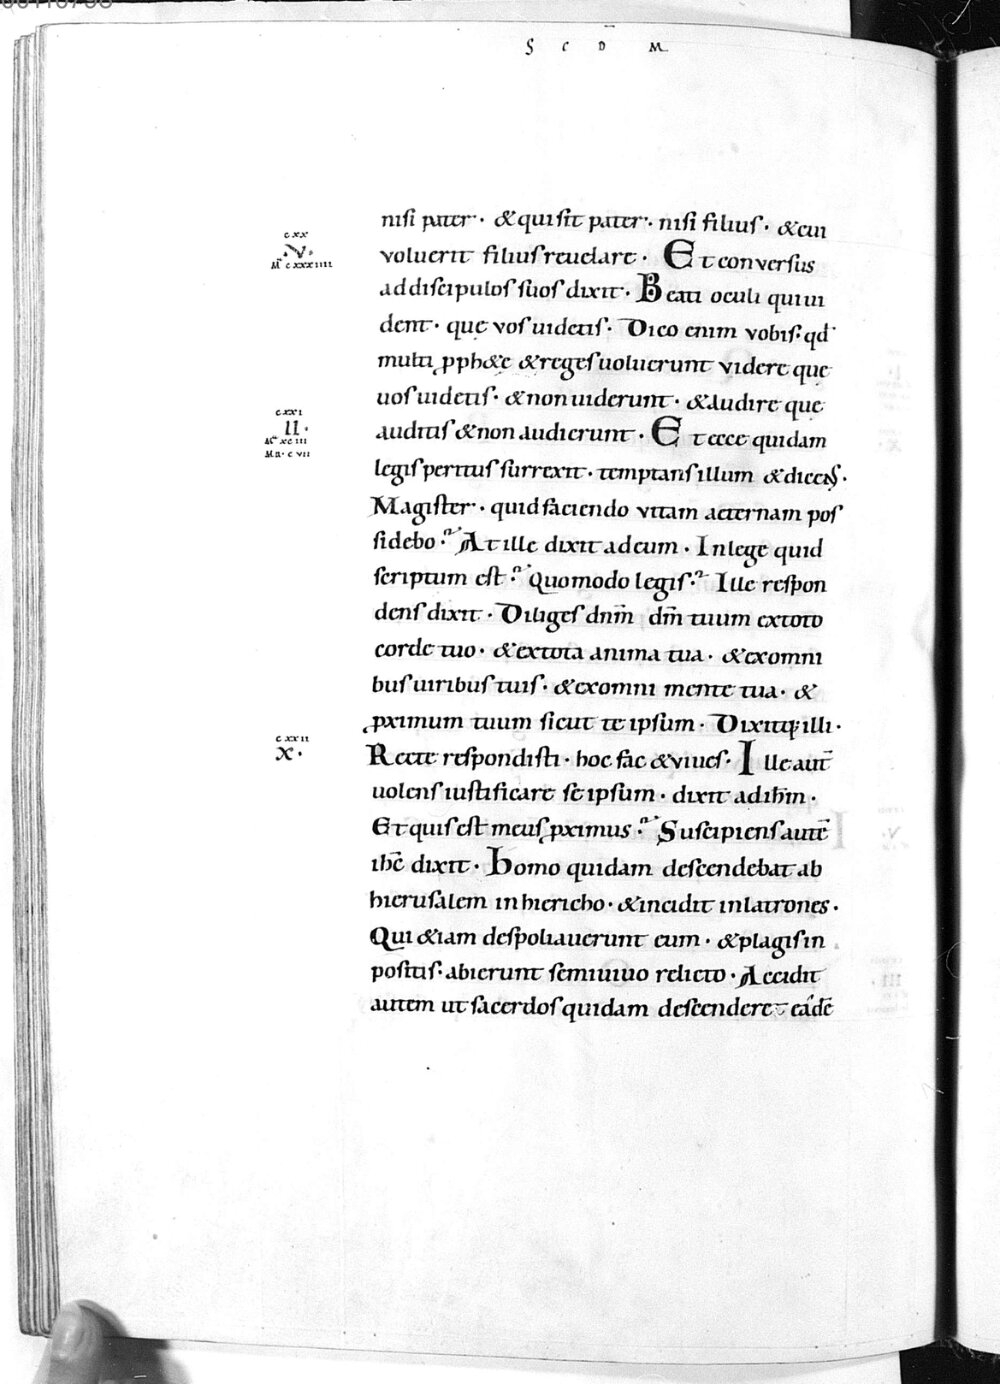 S C D̄ M
nisi pater · & quisit pater · nisi filius · & cui
voluerit filius reuelare · Et conversus
ad discipulos suos dixit · Beati oculi qui ui
dent · quę vos uidetis · Dico enim vobis · qd
multi pph&ę & reges uoluerunt videre que
uos uidetis · & non uiderunt · & audire quę
auditis & non audierunt · Et ecce quidam
legis peritus surrexit · temptans illum & dicens ·
Magister · quid faciendo vitam aeternam pos
sidebo · At ille dixit ad eum · In lege quid
scriptum est · Quomodo legis · Ille respon
dens dixit · Diliges dn̄m dm̄ tuum extoto
corde tuo · & extota anima tua · & exomni
bus uiribus tuis · & exomni mente tua · &
pximum tuum sicut te ipsum · Dixitq; illi ·
Recte respondisti · hoc fac & viues · Ille aut̄
uolens iustificare se ipsum · dixit ad ih̄m ·
Et quis est meus pximus · Suscipiens autē
ih̄c dixit · Homo quidam descendebat ab
hierusalem in hiericho · & incidit in latrones ·
Qui &iam despoliauerunt eum · & plagis in
positis · abierunt semiuiuo relicto · Accidit
autem ut sacerdos quidam descenderet eadē
cxx
V
M̄ cxxxiiii
cxxi
II ·
M̄ xciii
Ma · cvii
cxxii
X ·